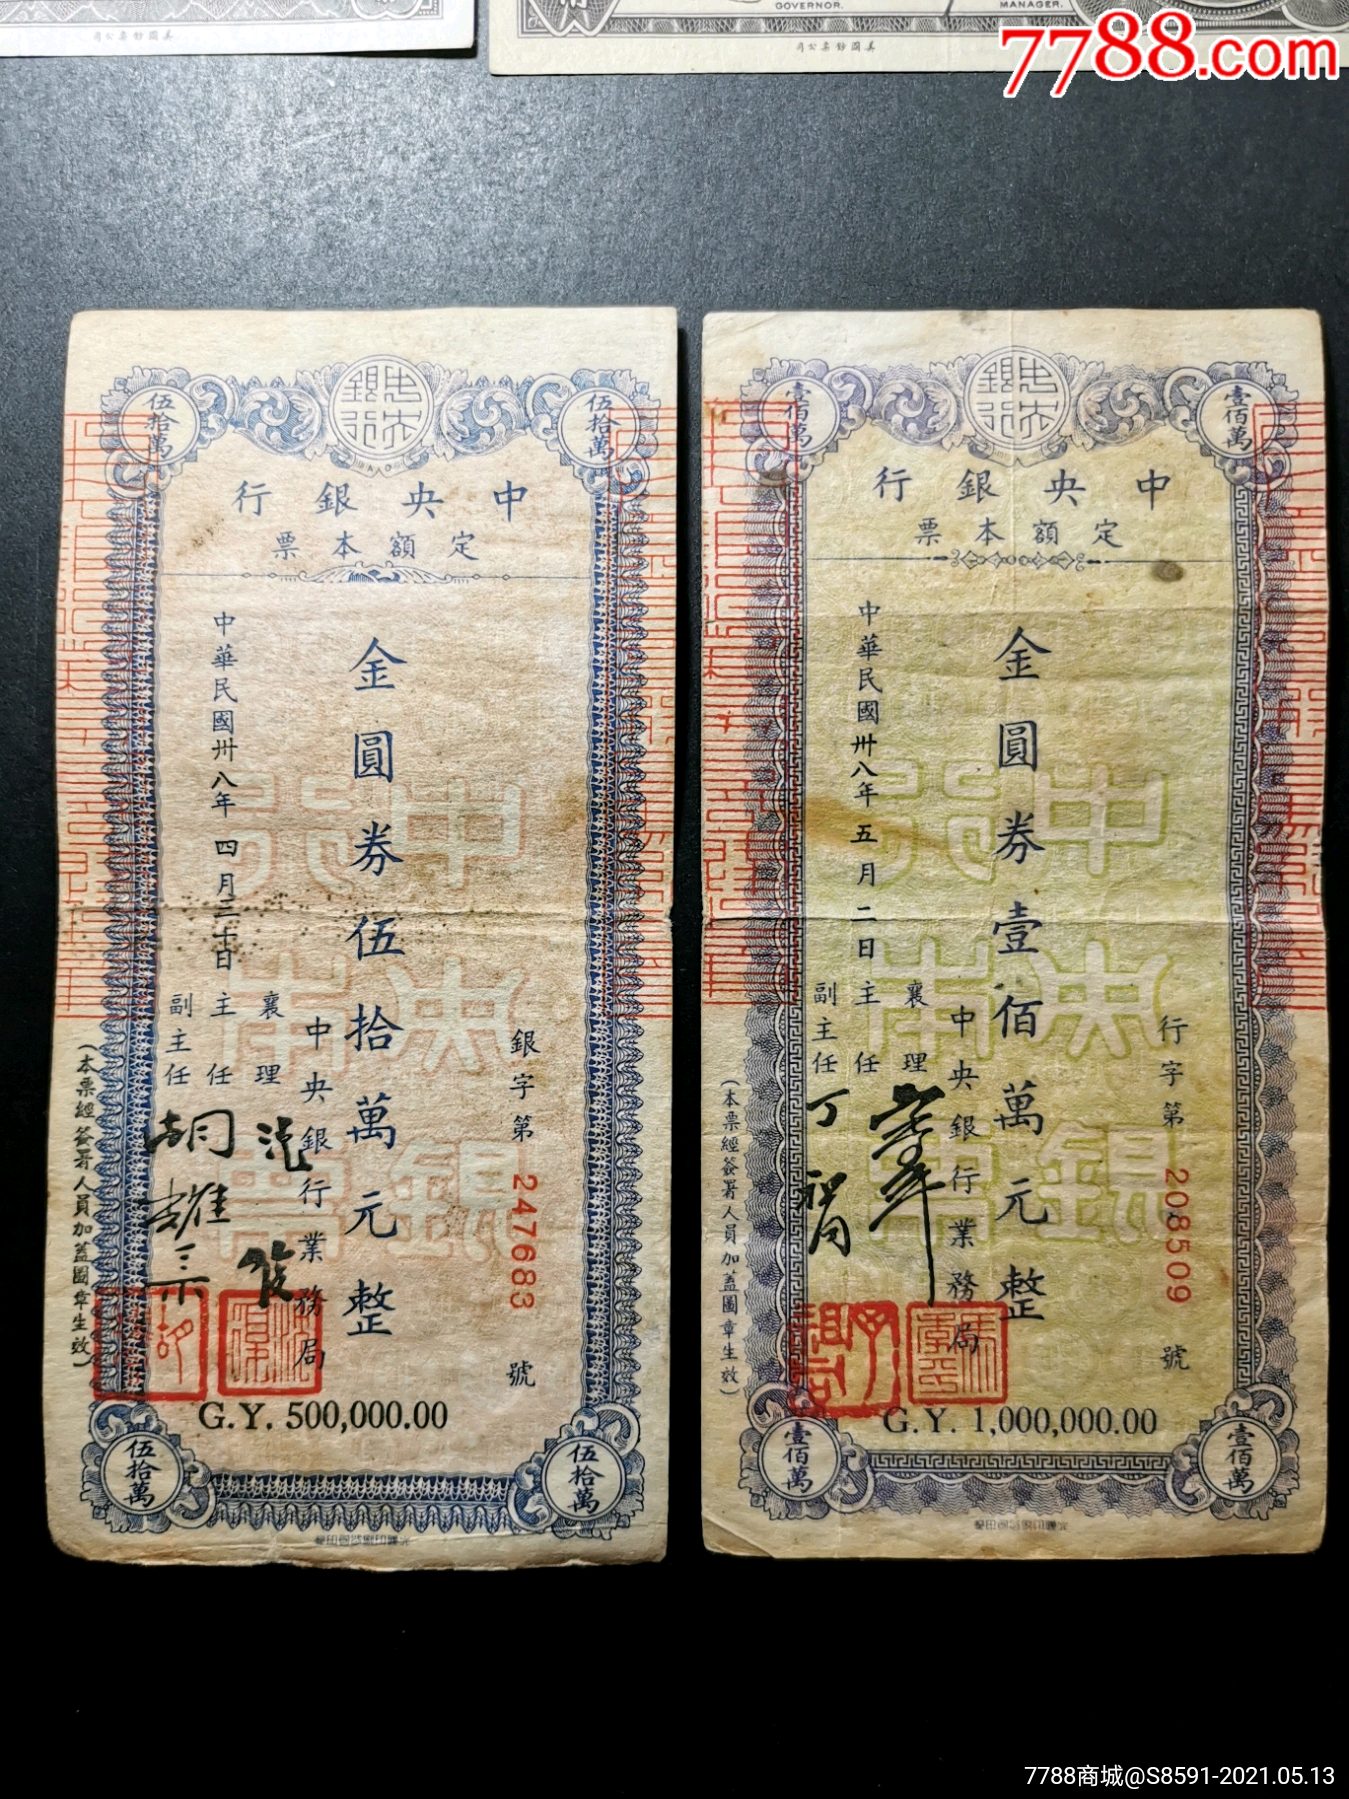 GOVERNOR.
MANAGER.
司公票鈔國美
司公票鈔國美
7788.com
伍拾萬
伍拾萬
中央銀行
行銀央中
票本額定
銀字第
247683
號
金圓券伍拾萬元整
中央銀行業務局
襄理
主任
副主任
中華民國卅八年四月三十日
(本票經簽署人員加蓋圖章生效)
G.Y. 500,000.00
伍拾萬
伍拾萬
壹佰萬
壹佰萬
中央銀行
行銀央中
票本額定
行字第
208509
號
金圓券壹佰萬元整
中央銀行業務局
襄理
主任
副主任
丁
中華民國卅八年五月二日
(本票經簽署人員加蓋圖章生效)
G.Y. 1,000,000.00
壹佰萬
壹佰萬
7788商城@S8591-2021.05.13